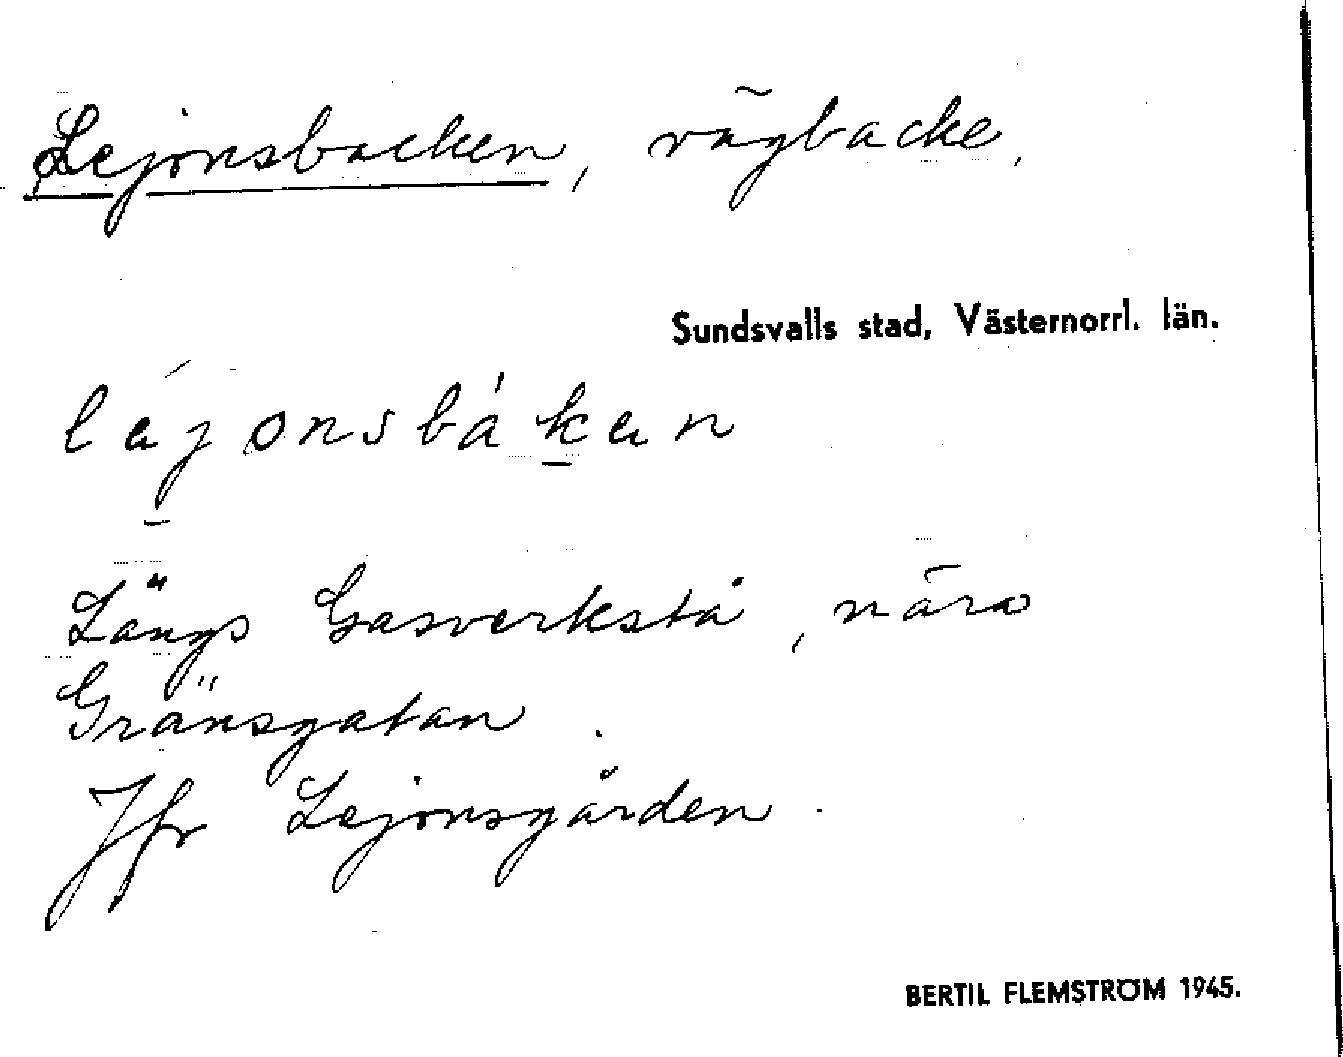 Lejonsbacken, vägbacke.
Sundsvalls stad, Västernorrl. län.
léjonsbákan
Längs Gasverkstå, nära
Gränsgatan.
Jfr Lejonsgården.
BERTIL FLEMSTRÖM 1945.